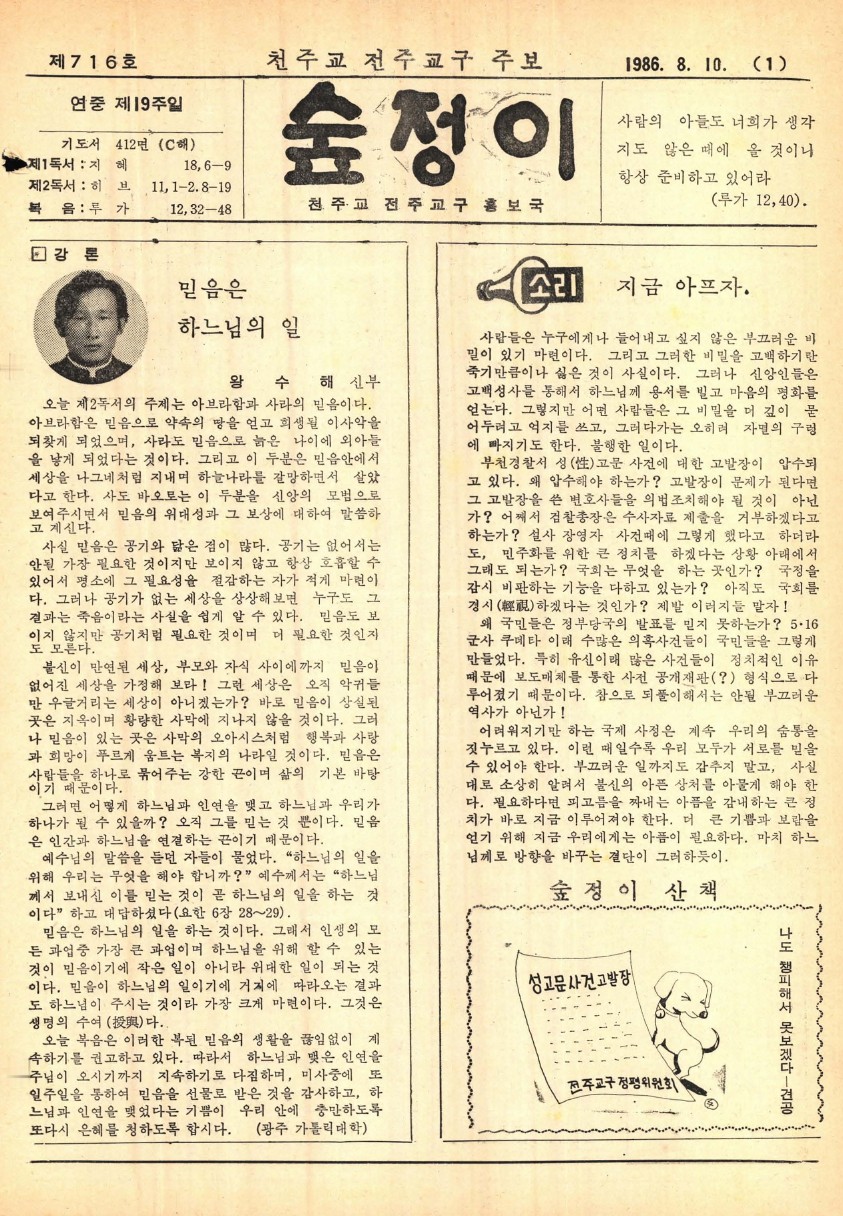 제716호
천주교 전주교구 주보
1986. 8. 10. (1)
연중 제19주일
기도서 412면 (C해)
제1독서 : 지 혜 18,6—9
제2독서 : 히 브 11,1—2.8—19
복 음 : 루 가 12,32—48
숲정이
천주교 전주교구 홍보국
사람의 아들도 너희가 생각
지도 않은 때에 올 것이니
항상 준비하고 있어라
(루가 12,40).
강 론
믿음은
하느님의 일
왕 수 해 신부
오늘 제2독서의 주제는 아브라함과 사라의 믿음이다.
아브라함은 믿음으로 약속의 땅을 얻고 희생될 이사악을
되찾게 되었으며, 사라도 믿음으로 늙은 나이에 외아들
을 낳게 되었다는 것이다. 그리고 이 두분은 믿음안에서
세상을 나그네처럼 지내며 하늘나라를 갈망하면서 살았
다고 한다. 사도 바오로는 이 두분을 신앙의 모범으로
보여주시면서 믿음의 위대성과 그 보상에 대하여 말씀하
고 계신다.
사실 믿음은 공기와 닮은 점이 많다. 공기는 없어서는
안될 가장 필요한 것이지만 보이지 않고 항상 호흡할 수
있어서 평소에 그 필요성을 절감하는 자가 적게 마련이
다. 그러나 공기가 없는 세상을 상상해보면 누구도 그
결과는 죽음이라는 사실을 쉽게 알 수 있다. 믿음도 보
이지 않지만 공기처럼 필요한 것이며 더 필요한 것인지
도 모른다.
불신이 만연된 세상, 부모와 자식 사이에까지 믿음이
없어진 세상을 가정해 보라! 그런 세상은 오직 악귀들
만 우글거리는 세상이 아니겠는가? 바로 믿음이 상실된
곳은 지옥이며 황량한 사막에 지나지 않을 것이다. 그러
나 믿음이 있는 곳은 사막의 오아시스처럼 행복과 사랑
과 희망이 푸르게 움트는 복지의 나라일 것이다. 믿음은
사람들을 하나로 묶어주는 강한 끈이며 삶의 기본 바탕
이기 때문이다.
그러면 어떻게 하느님과 인연을 맺고 하느님과 우리가
하나가 될 수 있을까? 오직 그를 믿는 것 뿐이다. 믿음
은 인간과 하느님을 연결하는 끈이기 때문이다.
예수님의 말씀을 듣던 자들이 물었다. “하느님의 일을
위해 우리는 무엇을 해야 합니까?” 예수께서는 “하느님
께서 보내신 이를 믿는 것이 곧 하느님의 일을 하는 것
이다” 하고 대답하셨다(요한 6장 28~29).
믿음은 하느님의 일을 하는 것이다. 그래서 인생의 모
든 과업중 가장 큰 과업이며 하느님을 위해 할 수 있는
것이 믿음이기에 작은 일이 아니라 위대한 일이 되는 것
이다. 믿음이 하느님의 일이기에 거기에 따라오는 결과
도 하느님이 주시는 것이라 가장 크게 마련이다. 그것은
생명의 수여(授與)다.
오늘 복음은 이러한 복된 믿음의 생활을 끊임없이 계
속하기를 권고하고 있다. 따라서 하느님과 맺은 인연을
주님이 오시기까지 지속하기로 다짐하며, 미사중에 또
일주일을 통하여 믿음을 선물로 받은 것을 감사하고, 하
느님과 인연을 맺었다는 기쁨이 우리 안에 충만하도록
또다시 은혜를 청하도록 합시다. (광주 가톨릭대학)
소리
지금 아프자.
사람들은 누구에게나 들어내고 싶지 않은 부끄러운 비
밀이 있기 마련이다. 그리고 그러한 비밀을 고백하기란
죽기만큼이나 싫은 것이 사실이다. 그러나 신앙인들은
고백성사를 통해서 하느님께 용서를 빌고 마음의 평화를
얻는다. 그렇지만 어떤 사람들은 그 비밀을 더 깊이 묻
어두려고 억지를 쓰고, 그러다가는 오히려 자멸의 구렁
에 빠지기도 한다. 불행한 일이다.
부천경찰서 성(性)고문 사건에 대한 고발장이 압수되
고 있다. 왜 압수해야 하는가? 고발장이 문제가 된다면
그 고발장을 쓴 변호사들을 의법조치해야 될 것이 아닌
가? 어째서 검찰총장은 수사자료 제출을 거부하겠다고
하는가? 설사 장영자 사건때에 그렇게 했다고 하더라
도, 민주화를 위한 큰 정치를 하겠다는 상황 아래에서
그래도 되는가? 국회는 무엇을 하는 곳인가? 국정을
감시 비판하는 기능을 다하고 있는가? 아직도 국회를
경시(輕視)하겠다는 것인가? 제발 이러지들 말자!
왜 국민들은 정부당국의 발표를 믿지 못하는가? 5·16
군사 쿠데타 이래 수많은 의혹사건들이 국민들을 그렇게
만들었다. 특히 유신이래 많은 사건들이 정치적인 이유
때문에 보도매체를 통한 사전 공개재판(?) 형식으로 다
루어졌기 때문이다. 참으로 되풀이해서는 안될 부끄러운
역사가 아닌가!
어려워지기만 하는 국제 사정은 계속 우리의 숨통을
짓누르고 있다. 이런 때일수록 우리 모두가 서로를 믿을
수 있어야 한다. 부끄러운 일까지도 감추지 말고, 사실
대로 소상히 알려서 불신의 아픈 상처를 아물게 해야 한
다. 필요하다면 피고름을 짜내는 아픔을 감내하는 큰 정
치가 바로 지금 이루어져야 한다. 더 큰 기쁨과 보람을
얻기 위해 지금 우리에게는 아픔이 필요하다. 마치 하느
님께로 방향을 바꾸는 결단이 그러하듯이.
숲정이 산책
성고문사건고발장
전주교구 정평위원회
나도 챙피해서 못보겠다—견공